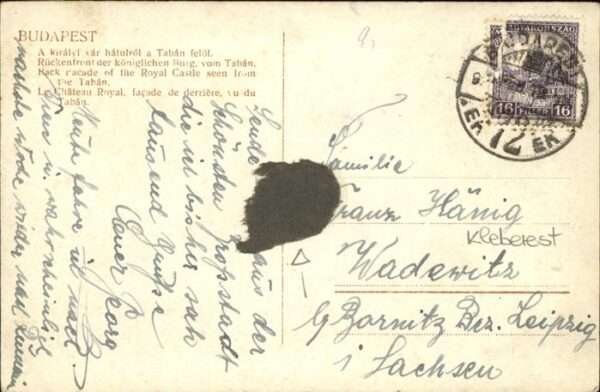 BUDAPEST
A királyi vár hátulról a Tabán felől.
Rückenfront der königlichen Burg, vom Tabán.
Back facade of the Royal Castle seen from
the Tabán.
Le Château Royal, façade de derrière, vu du
Tabán.
Sende aus der
schönsten Großstadt
die ich bisher sah
tausend Grüße
Euer Georg
Heute fahre ich nach
u. wahrscheinlich
nächste Woche wieder nach
MAGYARORSZÁG
16 FILLÉR 16
BUDAPEST
12
Familie
Franz Hänig
Kleberest
Wadewitz
b/ Bornitz Bez. Leipzig
i Sachsen